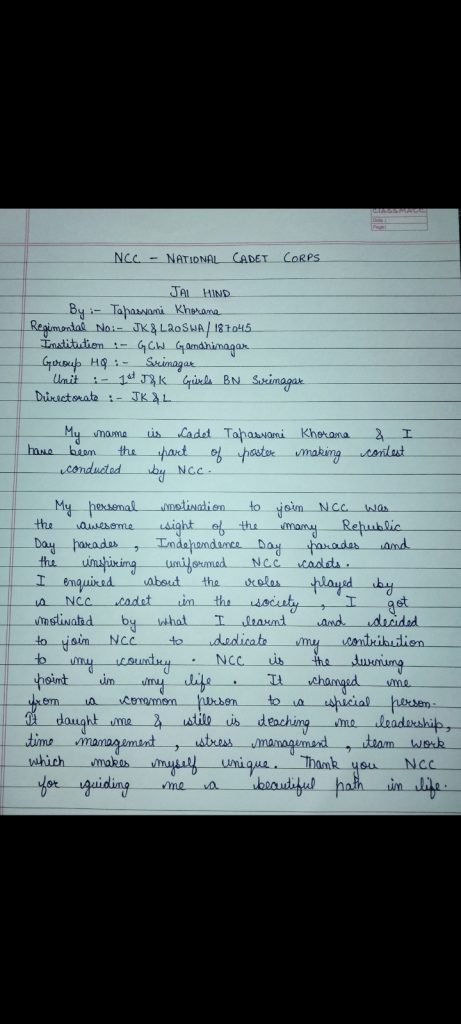 CLASSMATE
Date :
Page :
NCC – NATIONAL CADET CORPS
JAI HIND
By :- Tapasvani Khorana
Regimental No:- JK&L20SWA/187045
Institution :- GCW Gandhinagar
Group HQ :- Srinagar
Unit :- 1st J&K Girls BN Srinagar
Directorate :- JK&L
My name is Cadet Tapasvani Khorana & I
have been the part of poster making contest
conducted by NCC.
My personal motivation to join NCC was
the awesome sight of the many Republic
Day parades, Independence Day parades and
the inspiring uniformed NCC cadets.
I enquired about the roles played by
a NCC cadet in the society, I got
motivated by what I learnt and decided
to join NCC to dedicate my contribution
to my country. NCC is the turning
point in my life. It changed me
from a common person to a special person.
It taught me & still is teaching me leadership,
time management, stress management, team work
which makes myself unique. Thank you NCC
for guiding me a beautiful path in life.